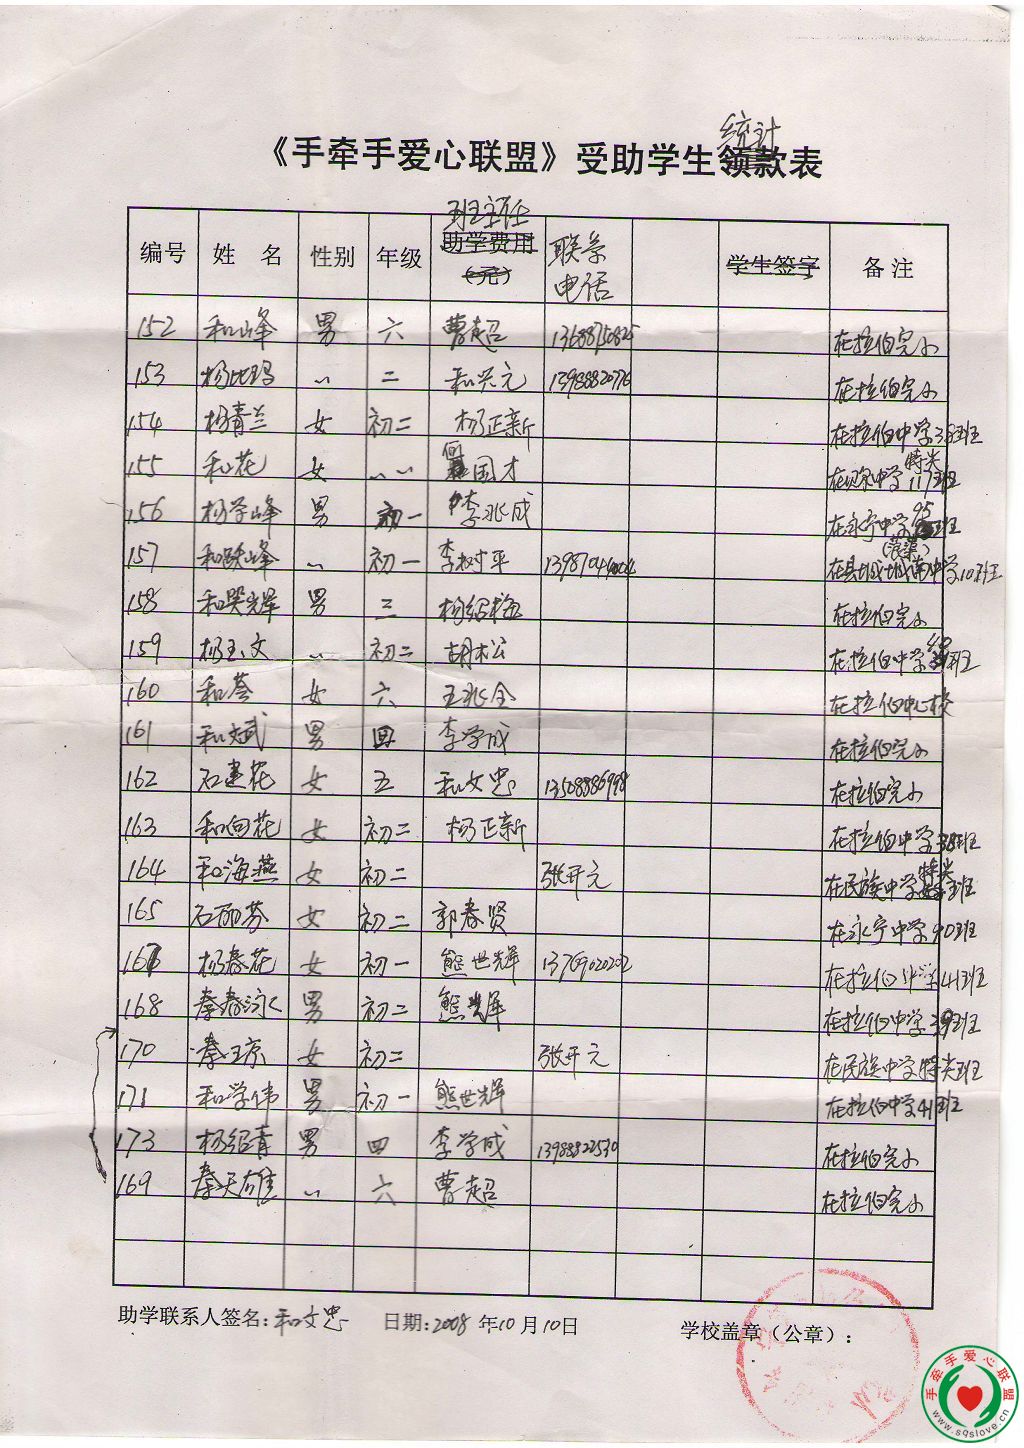 统计
《手牵手爱心联盟》受助学生领款表
编号 姓 名 性别 年级 班主任 助学费用（元） 联系电话 学生签字 备注
152 和山峰 男 六 曹超 在拉伯完小
153 杨比玛 〃 二 和兴元 13988820776 在拉伯完小
154 杨青兰 女 初二 杨正新 在拉伯中学38班
155 和花 女 〃 国才 中学特尖117班
156 杨学峰 男 初一 李兆成 在永宁中学95班
157 和跃峰 〃 初一 李树平 在县城城南中学10班
158 男 三 杨绍梅 在拉伯完小
159 杨玉文 〃 初二 胡松 在拉伯中学40班
160 和荟 女 六 王兆全 在拉伯中心校
161 和文斌 男 四 李学成 在拉伯完小
162 石建花 女 五 和文忠 13508886998 在拉伯完小
163 和向花 女 初二 杨正新 在拉伯中学38班
164 和海燕 女 初二 张开元 在民族中学特尖班
165 石丽芬 女 初二 郭春贤 在永宁中学90班
167 杨春花 女 初一 熊世辉 13769020202 在拉伯中学41班
168 秦春泳 男 初二 熊世辉 在拉伯中学39班
170 秦江京 女 初二 张开元 在民族中学特尖班
171 和学伟 男 初一 熊世辉 在拉伯中学41班
173 杨绍青 男 四 李学成 13988822530 在拉伯完小
169 秦天雄 〃 六 曹超 在拉伯完小
助学联系人签名：和文忠 日期：2008年10月10日 学校盖章（公章）：
手牵手爱心联盟
www.sqslove.cn